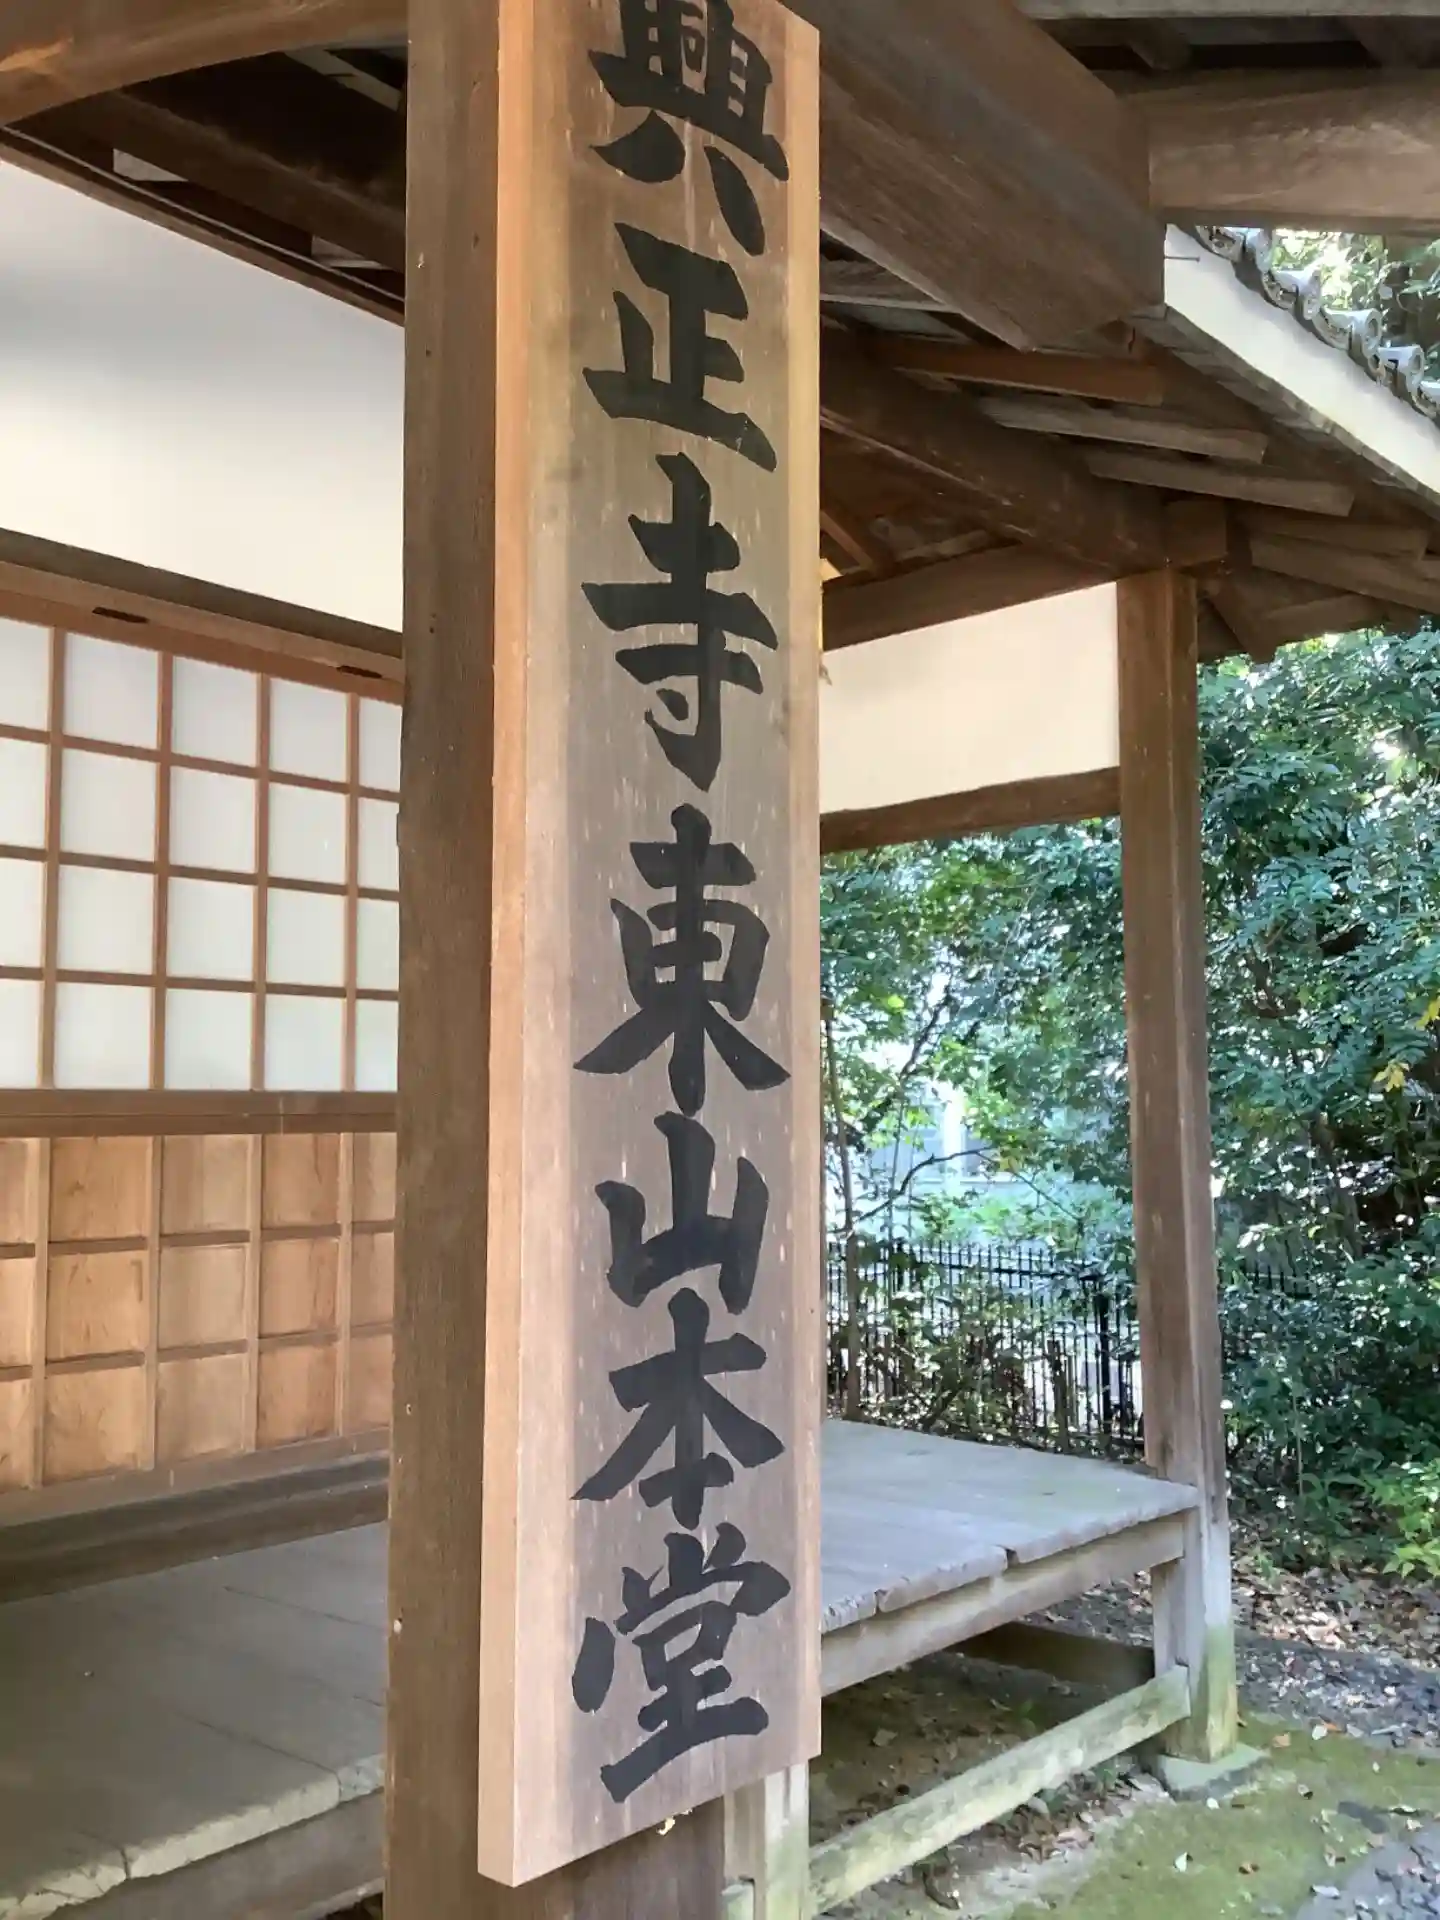 興正寺東山本堂